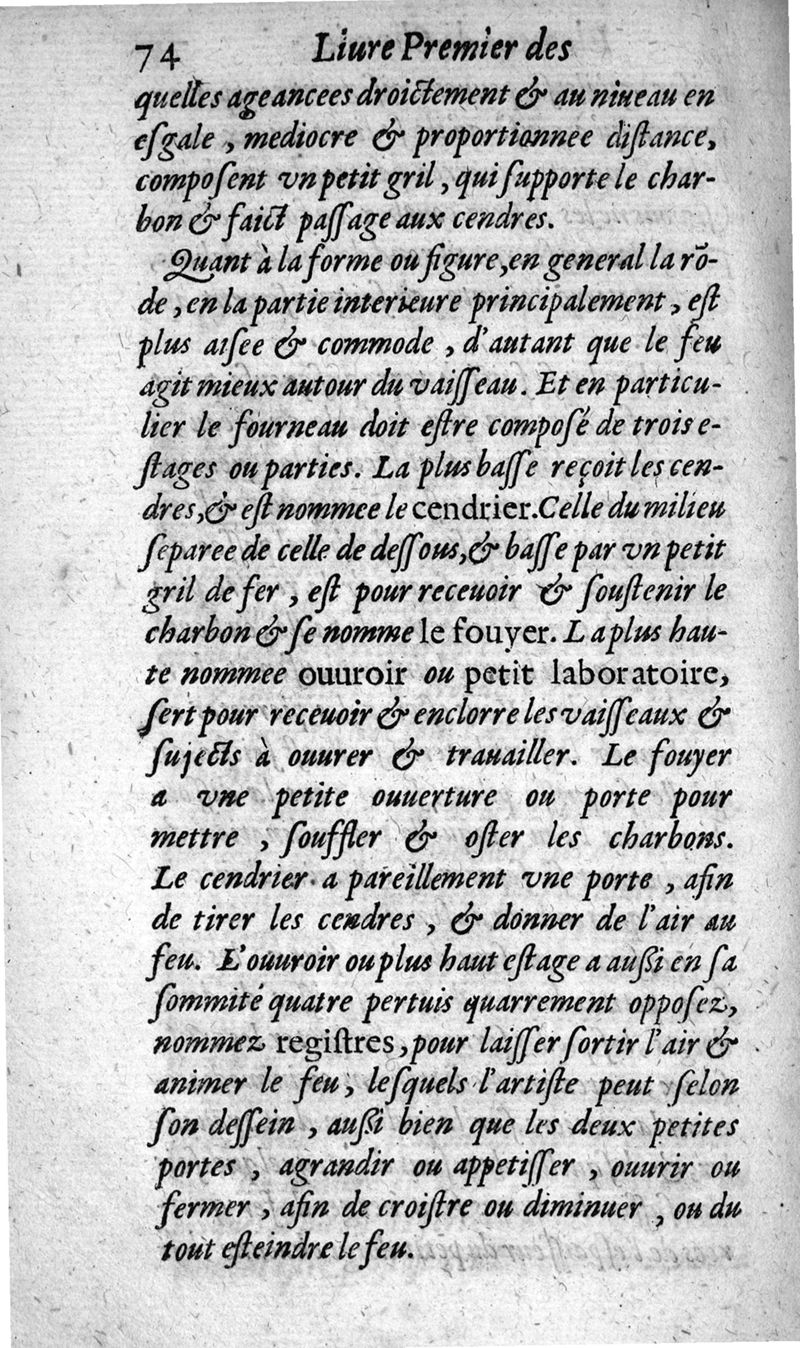 74 Liure Premier des
quelles ageancees droictement & au niueau en
esgale , mediocre & proportionnee distance,
composent vn petit gril , qui supporte le char-
bon & faict passage aux cendres.
Quant à la forme ou figure,en general la rõ-
de , en la partie interieure principalement , est
plus aisee & commode , d'autant que le feu
agit mieux autour du vaisseau. Et en particu-
lier le fourneau doit estre composé de trois e-
stages ou parties. La plus basse reçoit les cen-
dres,& est nommee le cendrier.Celle du milieu
separee de celle de dessous,& basse par vn petit
gril de fer , est pour receuoir & soustenir le
charbon & se nomme le fouyer. La plus hau-
te nommee ouuroir ou petit laboratoire,
sert pour receuoir & enclorre les vaisseaux &
sujects à ouurer & trauailler. Le fouyer
a vne petite ouuerture ou porte pour
mettre , souffler & oster les charbons.
Le cendrier a pareillement vne porte , afin
de tirer les cendres , & donner de l'air au
feu. L'ouuroir ou plus haut estage a aussi en sa
sommité quatre pertuis quarrement opposez,
nommez registres,pour laisser sortir l'air &
animer le feu , lesquels l'artiste peut selon
son dessein , aussi bien que les deux petites
portes , agrandir ou appetisser , ouurir ou
fermer , afin de croistre ou diminuer , ou du
tout esteindre le feu.